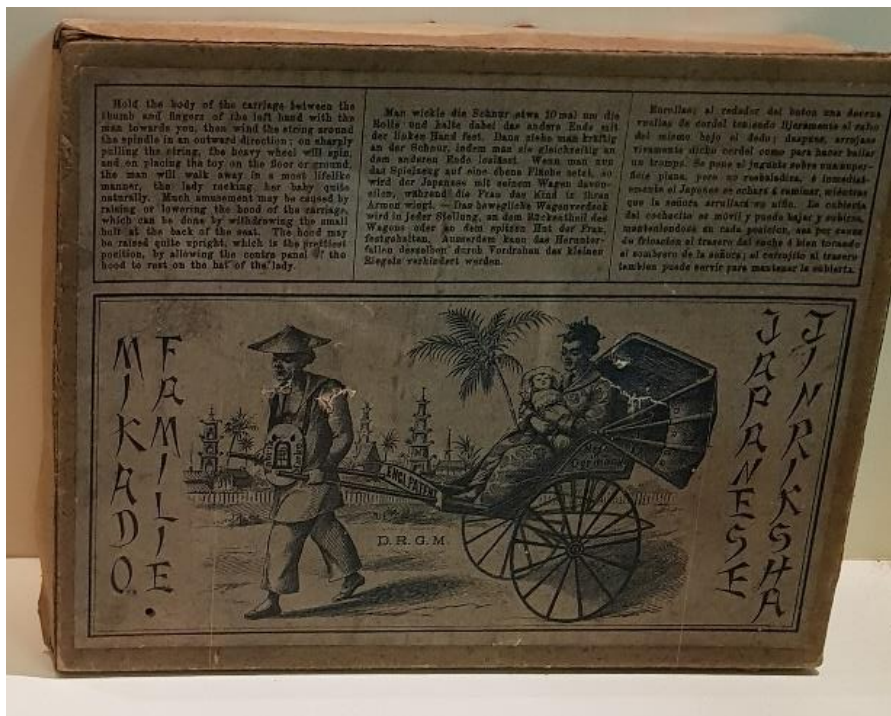 Hold the body of the carriage between the
thumb and fingers of the left hand with the
man towards you, then wind the string around
the spindle in an outward direction; on sharply
pulling the string, the heavy wheel will spin,
and on placing the toy on the floor or ground,
the man will walk away in a most lifelike
manner, the lady rocking her baby quite
naturally. Much amusement may be caused by
raising or lowering the hood of the carriage,
which can be done by withdrawing the small
bolt at the back of the seat. The hood may
be raised quite upright, which is the prettiest
position, by allowing the centre panel of the
hood to rest on the hat of the lady.
Man wickle die Schnur etwa 10 mal um die
Rolle und halte dabei das andere Ende mit
der linken Hand fest. Dann ziehe man kräftig
an der Schnur, indem man sie gleichzeitig an
dem anderen Ende loslässt. Wenn man nun
das Spielzeug auf eine ebene Fläche setzt, so
wird der Japanese mit seinem Wagen davon-
eilen, während die Frau das Kind in ihren
Armen wiegt. — Das bewegliche Wagenverdeck
wird in jeder Stellung, an dem Rückentheil des
Wagens oder an dem spitzen Hut der Frau,
festgehalten. Ausserdem kann das Herunter-
fallen desselben durch Vordrehen des kleinen
Riegels verhindert werden.
Enrollas; al rededor del boton una docena
vueltas de cordel teniendo lijeramente el cabo
del mismo bajo el dedo; despues, arrojase
vivamente dicho cordel como para hacer bailar
un trompo. Se pone el jugute sobre una super-
ficie plana, pero no resbaladiza, é inmediat-
amente el Japones se echará á caminar, mientras
que la señora arrullará su niño. La cubierta
del cochecito es móvil y puede bajar y subirse,
manteniendose en cada posicion, sea por causa
de friccion al trasero del coche ó bien tocando
el sombrero de la señora; el cerrojito al trasero
tambien puede servir para mantener la cubierta.
MIKADO
FAMILIE.
ENGL. PATENT
D. R. G. M.
Germany
JAPANESE
JINRIKSHA